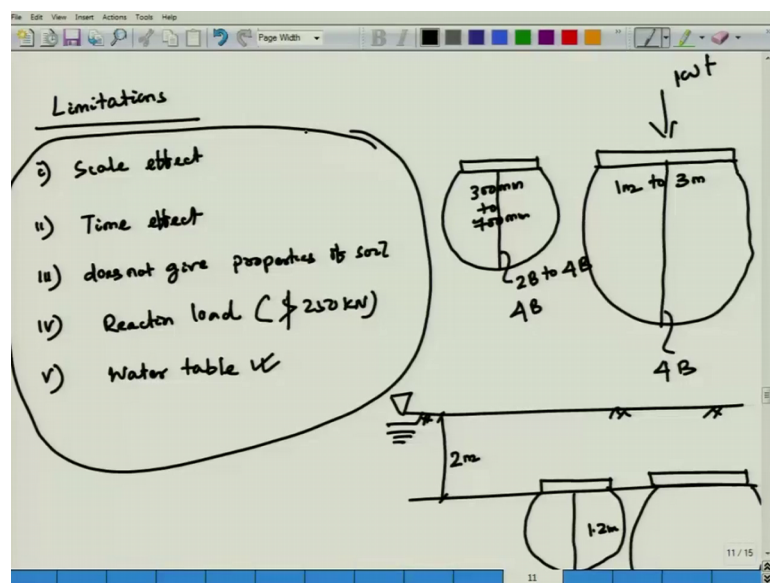 File Edit View Insert Actions Tools Help
Page Width
Limitations
i) Scale effect
ii) Time effect
iii) does not give properties of soil
iv) Reaction load (≯ 250 KN)
v) Water table
300mm
to
700mm
2B to 4B
4B
1m to 3m
4B
2m
1.2m
11 / 15
11